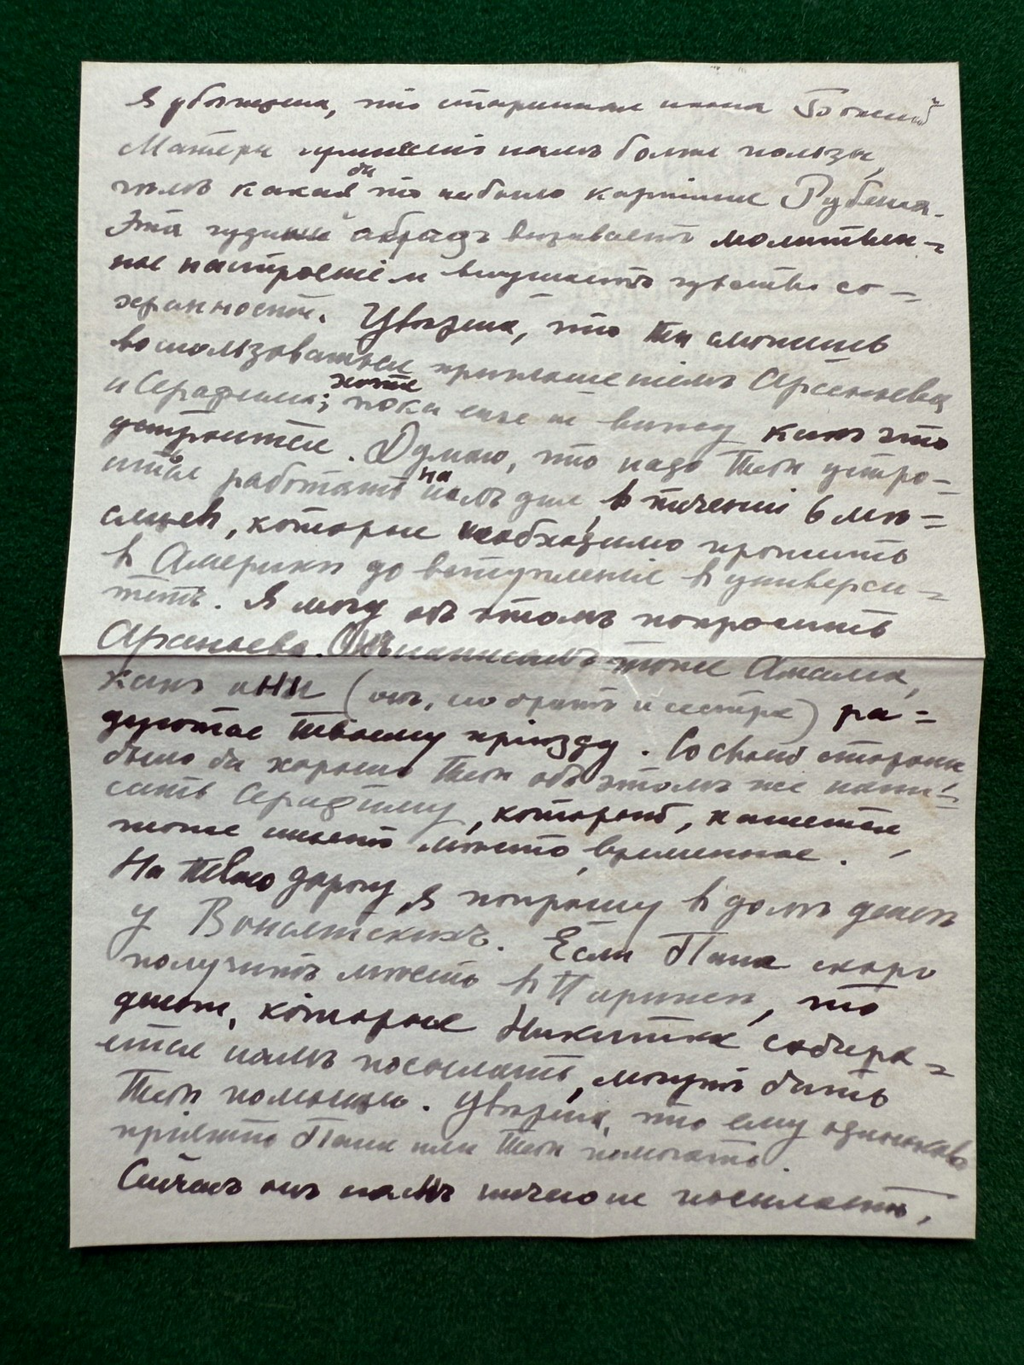 Я убѣждена, что старинная икона Божией
Матери принесетъ намъ больше пользы,
чѣмъ какая бы то ни было картина Рубенса.
Эта чудный образъ вызываетъ молитвен=
ное настроеніе и внушаетъ чувство со=
хранности. Увѣрена, что ты сможешь
воспользоваться приглашеніемъ Арсеньева
и Серафима; хотя пока еще не вижу какъ это
устроится. Думаю, что надо тебѣ устро=
иться работать на дня, въ теченіи 6 мѣ=
сяцевъ, которые необходимо прожить
въ Америкѣ до вступленія въ универси=
тетъ. Я могу объ этомъ попросить
Арсеньева. Онъ тоже
какъ они (онъ, его братъ и сестра) ра=
дуются твоему пріѣзду. Со своей стороны
было бы хорошо тебѣ объ этомъ же напи=
сать Серафиму, который, кажется,
тоже имѣетъ мѣсто временное.
На твою дорогу, я попрошу въ домъ денегъ
у Вонлярскихъ. Если Папа скоро
получитъ мѣсто въ Парижѣ, то
деньги, которые Никитка собира=
ется намъ посылать, могутъ быть
тебѣ помощью. Увѣрена, что ему одинаково
пріятно Папѣ или тебѣ помогать.
Сейчасъ онъ намъ ничего не посылаетъ,